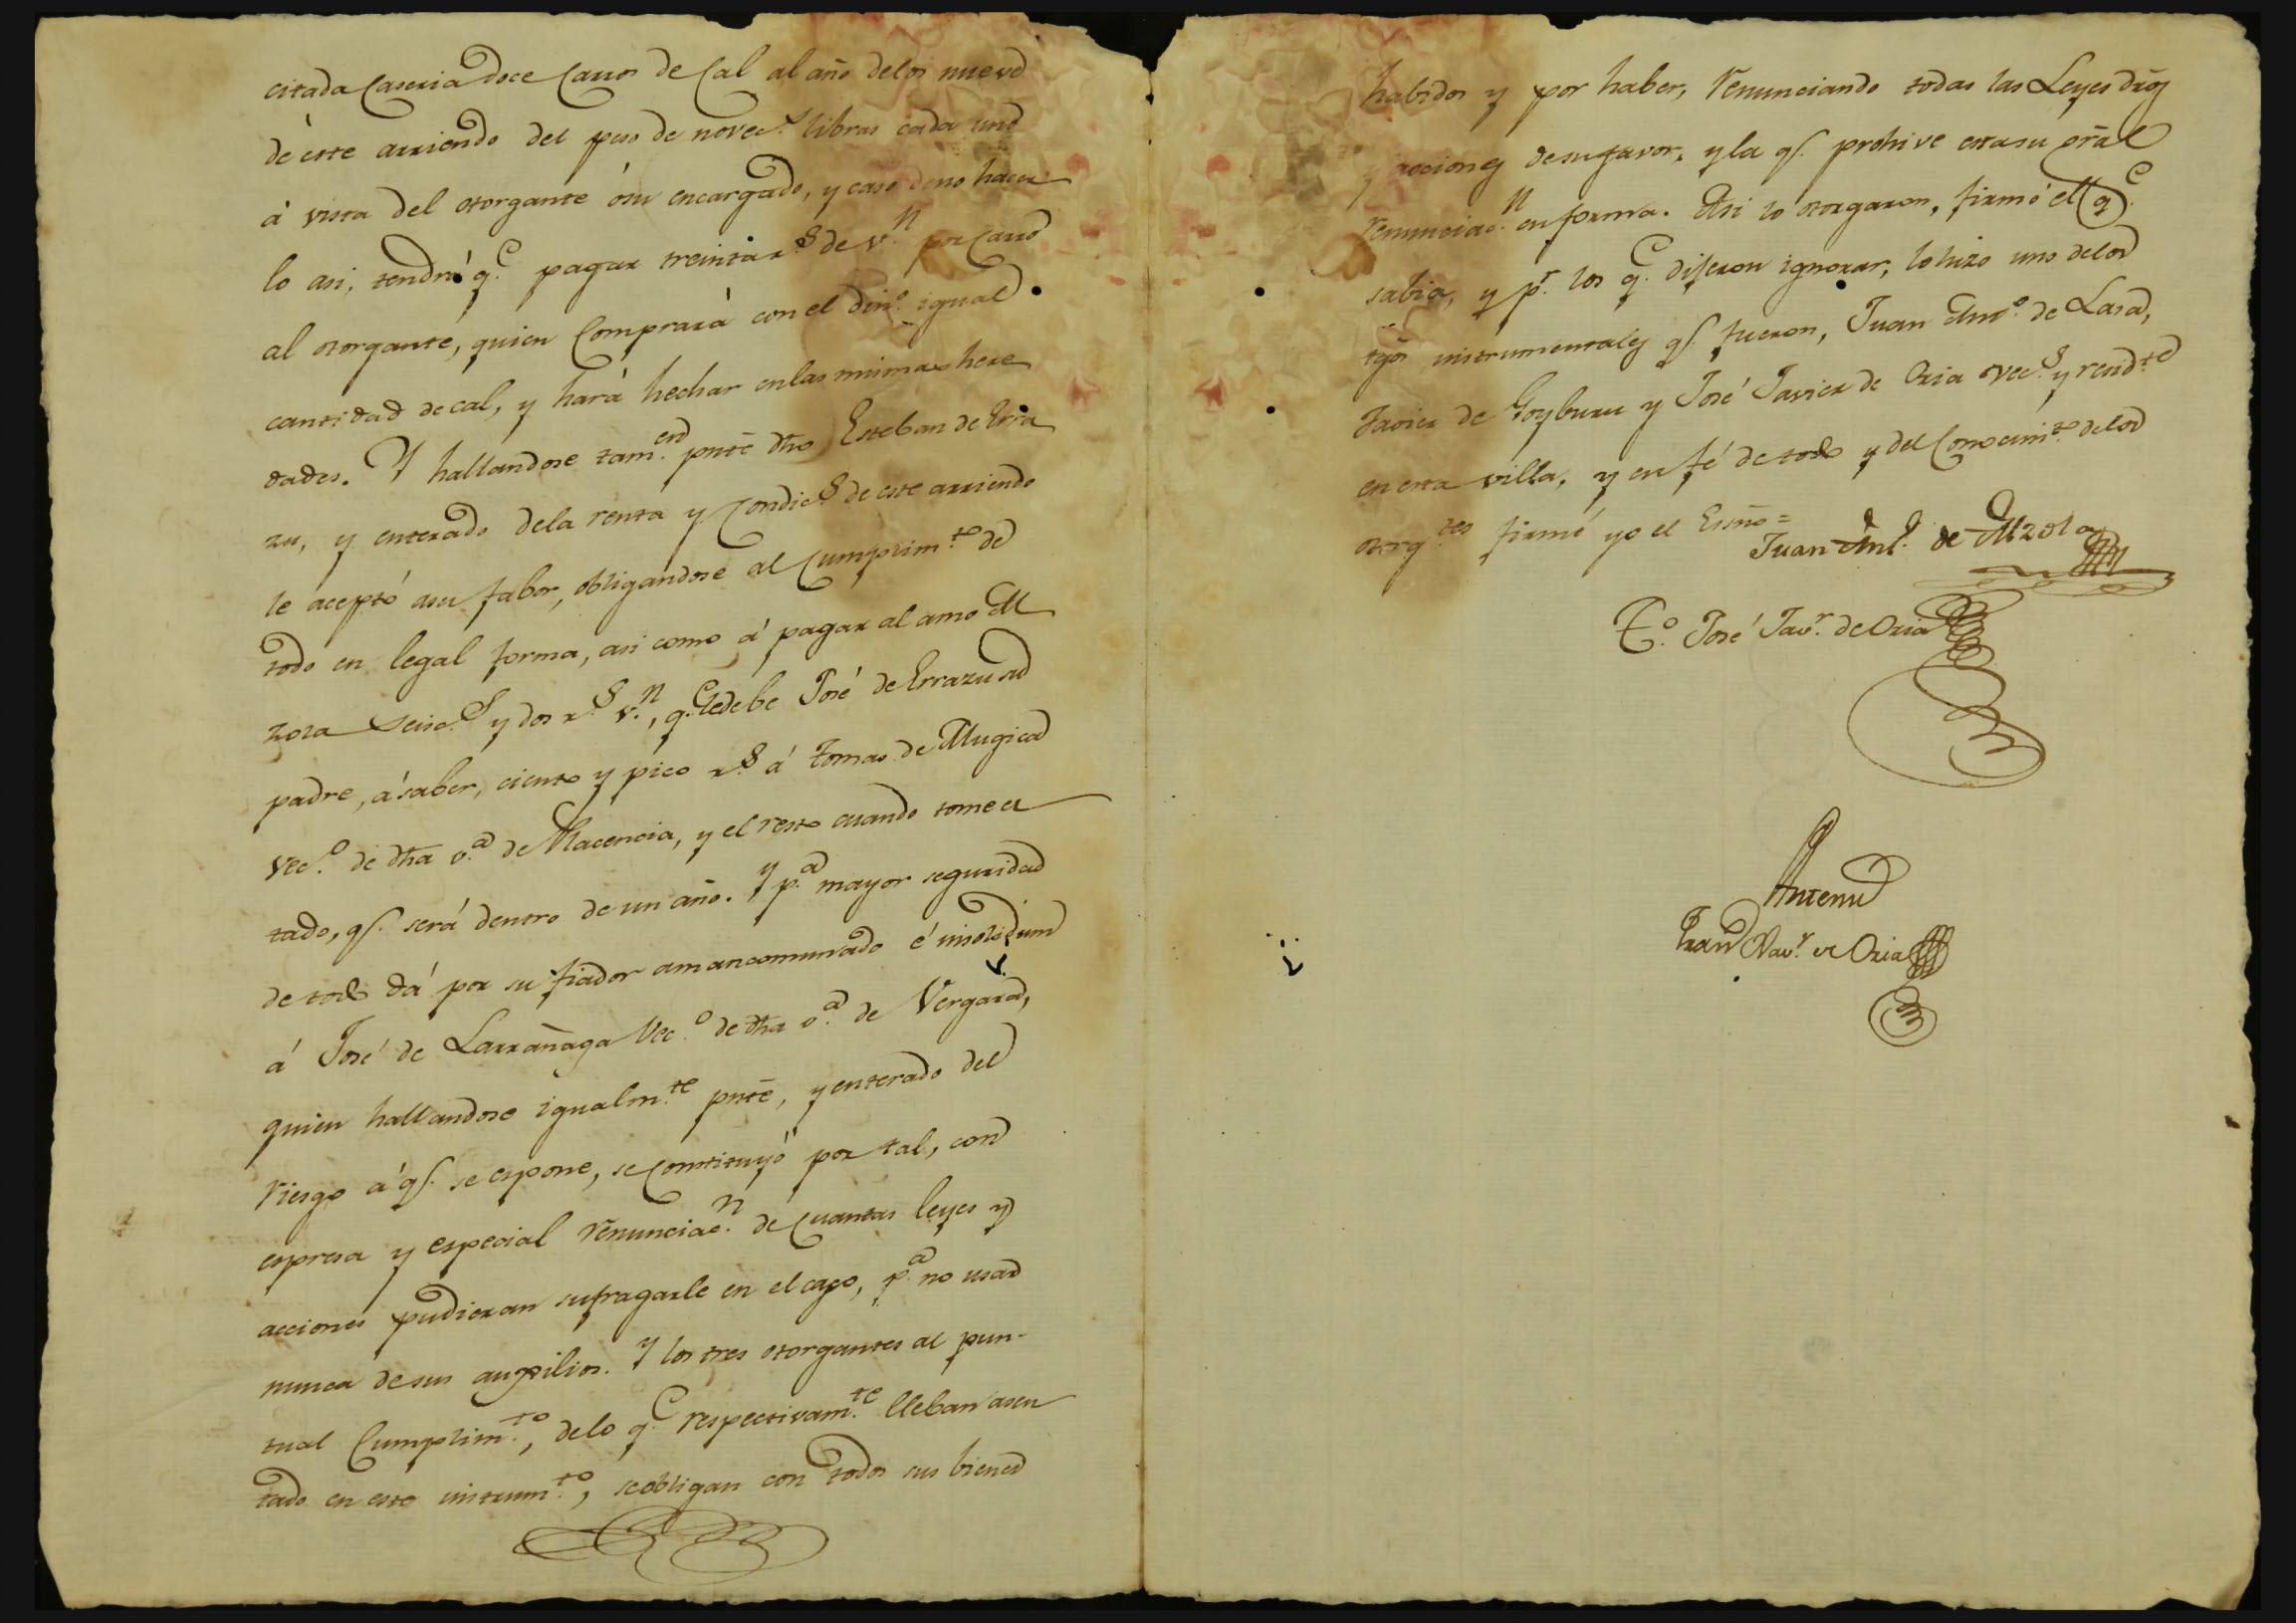 citada Caseria doce Carros de Cal al año delos nueve
de este arriendo del peso de novec.s libras cada uno
à vista del otorgante ósu encargado, y caso deno hacer
lo asi, tendrá q.e pagar treinta r.s de v.n por Carro
al otorgante, quien Comprará con el din.o igual
cantidad de cal, y hará hechar enlas mismas here
dades. Y hallandose tam.en pnte dho Esteban de Erra
zu, y enterado dela renta y Condic.s de este arriendo
le aceptó asu fabor, obligandose al Cumplim.to de
todo en legal forma, asi como á pagar al amo Al
zola Seisc.s y dos r.s v.n, q.e ledebe José de Errazu su
padre, ásaber, ciento y pico r.s á Tomas de Mugica
vec.o de dha v.a de Placencia, y el resto cuando tome el
tado, q.e será dentro de un año. Y p.a mayor seguridad
de todo dá por su fiador amancomunado é insolidum
á José de Larrañaga Vec.o de dha v.a de Vergara,
quien hallandose igualm.te pnte, y enterado del
riesgo á q.e se espone, se Constituyó por tal, con
espresa y especial renunciac.n de Cuantas leyes y
acciones pudieran sufragarle en el caso, p.a no usar
nunca de sus auxilios. Y los tres otorgantes al pun-
tual Cumplim.to, delo q.e respectivam.te lleban asen
tado en este instrum.to, se obligan con todos sus bienes
habidos y por haber, renunciando todas las Leyes dros
y acciones desu favor, y la q.e prohive esta su gral
renunciac.n en forma. Asi lo otorgaron, firmó el q.e
sabia, y p.r los q.e dijeron ignorar, lo hizo uno delos
tgos instrumentales q.e fueron, Juan Ant.o de Lasa,
Javier de Goyburu y José Javier de Oria vec.s y resid.te
en esta villa, y en fé de todo y del Conocim.to delos
otorg.tes firmé yo el Esno=
Juan Ant.o de Alzola
T.o José Jav.r de Oria
Antemi
Fran Xav.r de Oria